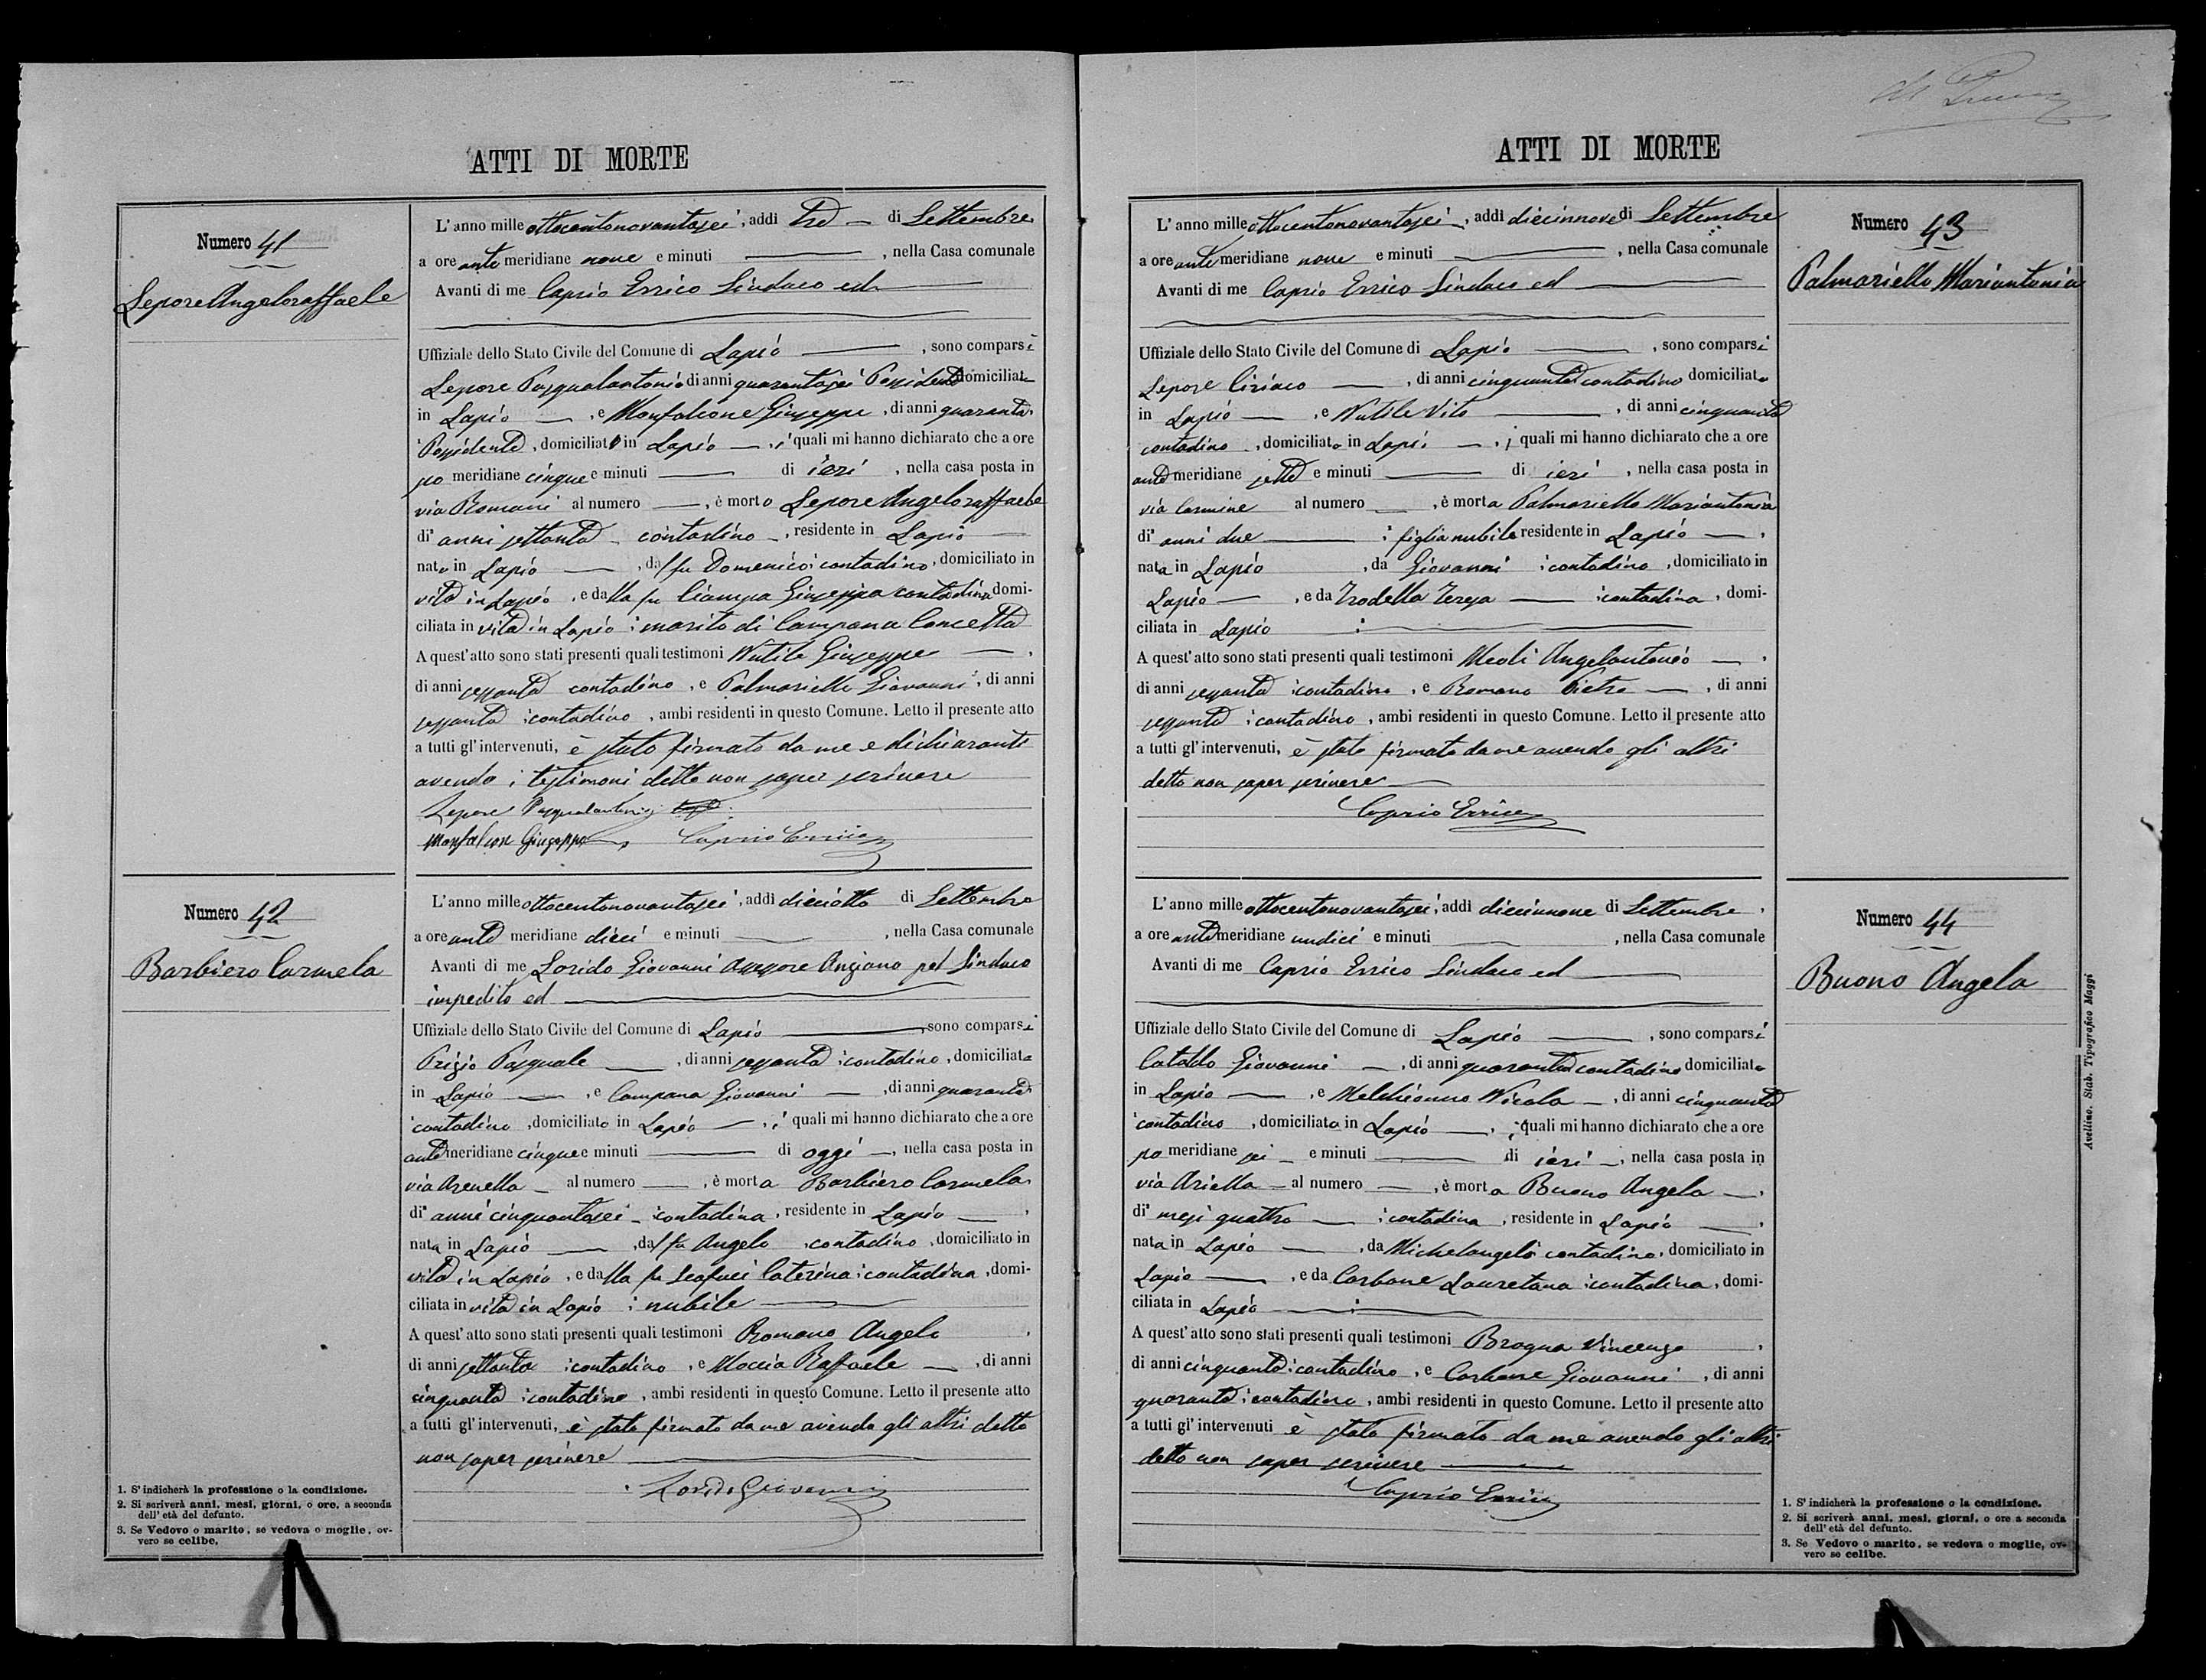 ATTI DI MORTE
Numero 41
Lepore Angeloraffaele
L'anno mille ottocentonovantasei, addì tre di Settembre
a ore ante meridiane nove e minuti , nella Casa comunale
Avanti di me Caprio Errico Sindaco ed
Uffiziale dello Stato Civile del Comune di Lapio , sono comparsi
Lepore Pasqualantonio di anni quarantasei Possidente domiciliato
in Lapio , e Monfalcone Giuseppe , di anni quaranta
Possidente, domiciliato in Lapio , i quali mi hanno dichiarato che a ore
po meridiane cinque e minuti di ieri , nella casa posta in
via Romani al numero , è morto Lepore Angeloraffaele
di anni settanta contadino , residente in Lapio
nato in Lapio , dal fu Domenico contadino, domiciliato in
vita in Lapio , e dalla fu Ciampa Giuseppa contadina domi-
ciliata in vita in Lapio marito di Campana Concetta
A quest'atto sono stati presenti quali testimoni Nutile Giuseppe
di anni sessanta contadino , e Palmariello Giovanni , di anni
sessanta contadino , ambi residenti in questo Comune. Letto il presente atto
a tutti gl'intervenuti, è stato firmato da me e dichiaranti
avendo i testimoni detto non saper scrivere
Lepore Pasqualantonio
Monfalcon Giuseppe Caprio Errico
Numero 42
Barbiero Carmela
L'anno mille ottocentonovantasei, addì dieciotto di Settembre
a ore ante meridiane dieci e minuti , nella Casa comunale
Avanti di me Lorido Giovanni Assessore Anziano pel Sindaco
impedito ed
Uffiziale dello Stato Civile del Comune di Lapio sono comparsi
Prizio Pasquale , di anni sessanta contadino, domiciliato
in Lapio , e Campana Giovanni , di anni quaranta
contadino , domiciliato in Lapio , i quali mi hanno dichiarato che a ore
ante meridiane cinque e minuti di oggi , nella casa posta in
via Arenella al numero , è morta Barbiero Carmela
di anni cinquantasei contadina, residente in Lapio
nata in Lapio , dal fu Angelo contadino, domiciliato in
vita in Lapio , e dalla fu Scafuci Caterina contadina , domi-
ciliata in vita in Lapio nubile
A quest'atto sono stati presenti quali testimoni Romano Angelo
di anni settanta contadino , e Moccia Raffaele , di anni
cinquanta contadino , ambi residenti in questo Comune. Letto il presente atto
a tutti gl'intervenuti, è stato firmato da me avendo gli altri detto
non saper scrivere
Giovanni
1. S'indicherà la professione o la condizione.
2. Si scriverà anni, mesi, giorni, o ore, a seconda
dell'età del defunto.
3. Se Vedovo o marito, se vedova o moglie, ov-
vero se celibe.
ATTI DI MORTE
L'anno mille ottocentonovantasei, addì diecinnove di Settembre
a ore ante meridiane nove e minuti , nella Casa comunale
Avanti di me Caprio Errico Sindaco ed
Uffiziale dello Stato Civile del Comune di Lapio , sono comparsi
Lepore Ciriaco , di anni cinquanta contadino domiciliato
in Lapio , e Nutile Vito , di anni cinquanta
contadino , domiciliato in Lapio , i quali mi hanno dichiarato che a ore
ante meridiane sette e minuti di ieri , nella casa posta in
via Carmine al numero , è morta Palmariello Mariantonia
di anni due figlia nubile residente in Lapio
nata in Lapio , da Giovanni contadino , domiciliato in
Lapio , e da Trodella Teresa contadina , domi-
ciliata in Lapio
A quest'atto sono stati presenti quali testimoni Meoli Angelantonio
di anni sessanta contadino , e Romano Pietro , di anni
sessanta contadino , ambi residenti in questo Comune. Letto il presente atto
a tutti gl'intervenuti, è stato firmato da me avendo gli altri
detto non saper scrivere
Caprio Errico
Numero 43
Palmariello Mariantonia
L'anno mille ottocentonovantasei, addì diecinnove di Settembre
a ore ante meridiane undici e minuti , nella Casa comunale
Avanti di me Caprio Errico Sindaco ed
Uffiziale dello Stato Civile del Comune di Lapio , sono comparsi
Cataldo Giovanni , di anni quaranta contadino domiciliato
in Lapio , e Melchionno Nicola , di anni cinquanta
contadino , domiciliato in Lapio , i quali mi hanno dichiarato che a ore
po meridiane sei e minuti di ieri , nella casa posta in
via Ariella al numero , è morta Buono Angela
di mesi quattro contadina , residente in Lapio
nata in Lapio , da Michelangelo contadino, domiciliato in
Lapio , e da Carbone Lauretana contadina, domi-
ciliata in Lapio
A quest'atto sono stati presenti quali testimoni Brogna Vincenzo
di anni cinquanta contadino, e Carbone Giovanni , di anni
quaranta contadino , ambi residenti in questo Comune. Letto il presente atto
a tutti gl'intervenuti è stato firmato da me avendo gli altri
detto non saper scrivere
Caprio Errico
Numero 44
Buono Angela
1. S'indicherà la professione o la condizione.
2. Si scriverà anni, mesi, giorni, o ore a seconda
dell'età del defunto.
3. Se Vedovo o marito, se vedova o moglie, ov-
vero se celibe.
Avellino. Stab. Tipografico Maggi